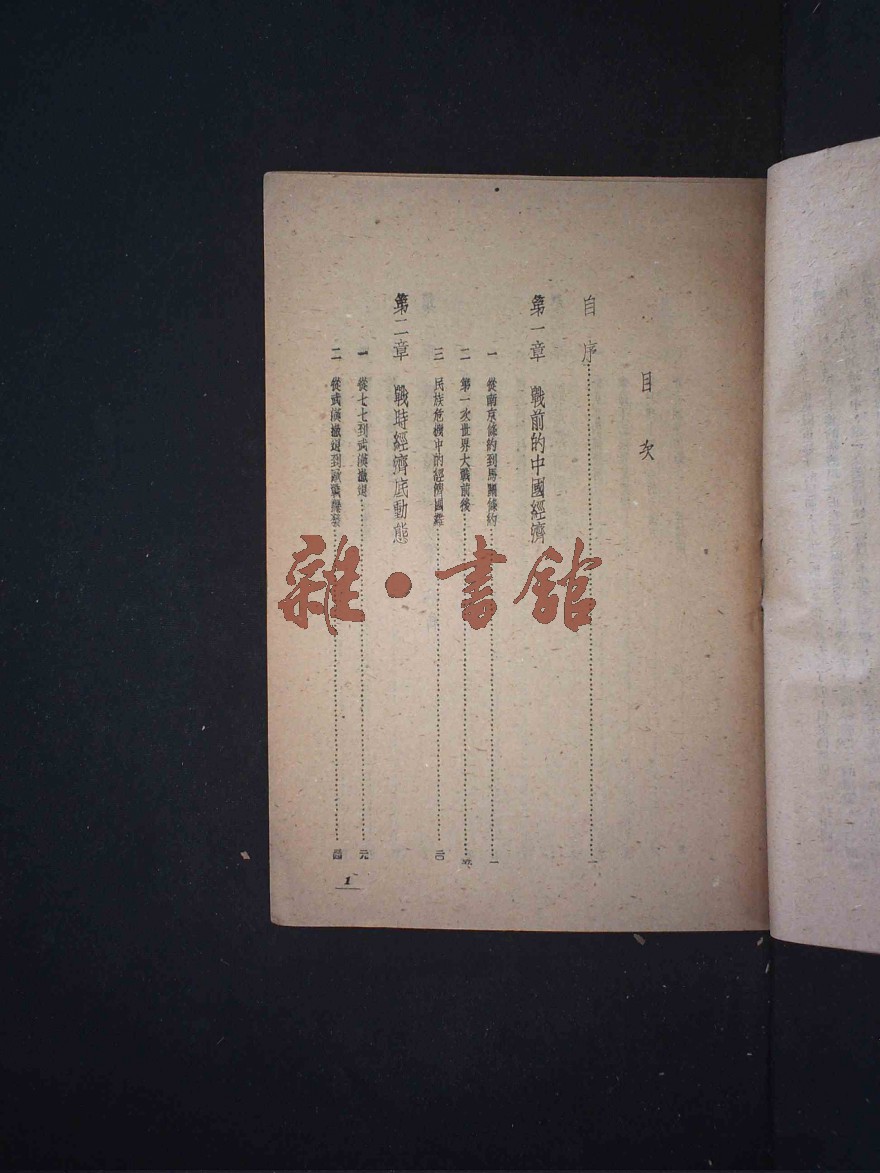 目次
自序……一
第一章 戰前的中國經濟
一 從南京條約到馬關條約……一
二 第一次世界大戰前後……
三 民族危機中的經濟國難……
第二章 戰時經濟底動態
一 從七七到武漢撤退……
二 從武漢撤退到
1
雜·書館